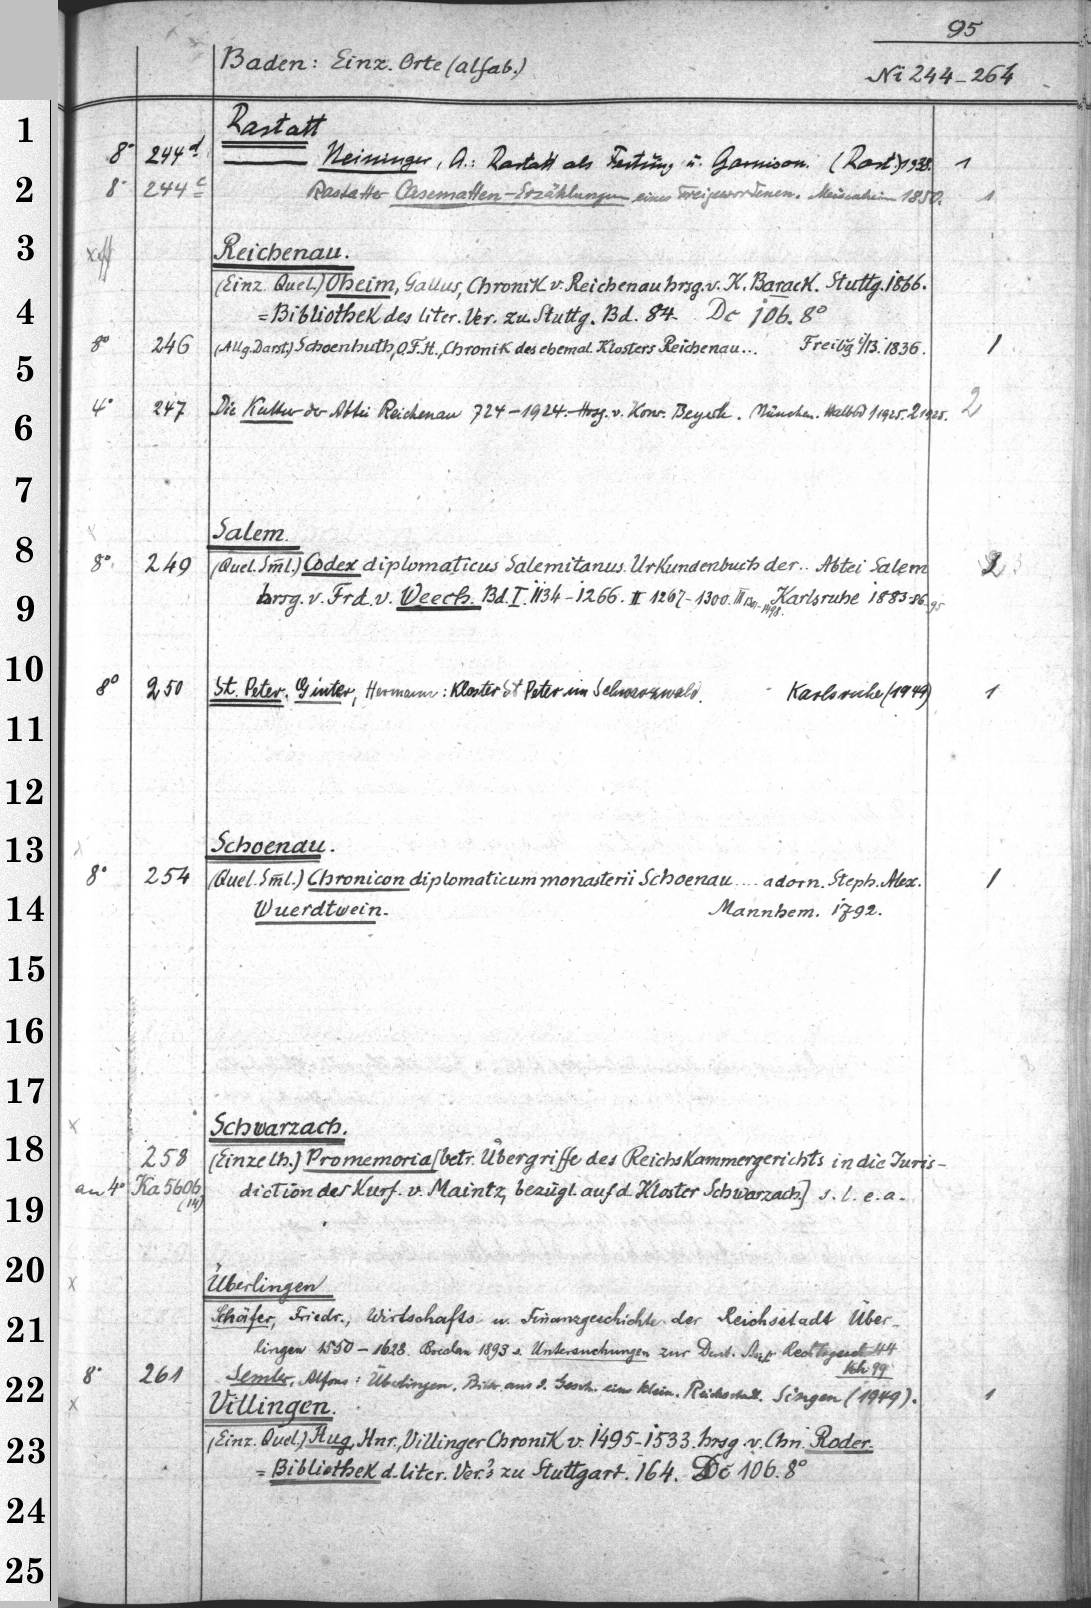 95
Baden: Einz. Orte (alfab.)
Ni 244-264
1
Rastatt
8° 244d Neininger, A.: Rastatt als Festung u. Garnison. (Rast.) 1938. 1
2
8° 244c Rastatter Casematten-Erzählungen eines Freigewordenen. Meisenheim 1850. 1
3
Reichenau.
(Einz. Quel.) Oheim, Gallus, Chronik v. Reichenau hrsg. v. K. Barack. Stuttg. 1866.
4
= Bibliothek des liter. Ver. zu Stuttg. Bd. 84. Dc 106. 8°
8° 246 (Allg. Darst.) Schoenhuth, O. F. H., Chronik des ehemal. Klosters Reichenau... Freibg i/B. 1836. 1
5
4° 247 Die Kultur der Abtei Reichenau 724-1924. Hrsg. v. Konr. Beyerle. München. Halbbd 1 1925. 2 1925. 2
6
7
Salem.
8
8° 249 (Quel. Sml.) Codex diplomaticus Salemitanus. Urkundenbuch der.. Abtei Salem 3
9
hrsg. v. Frd. v. Weech. Bd. I. 1134-1266. II 1267-1300. III 1301-1498. Karlsruhe 1883-86-95
10
8° 250 St. Peter. Ginter, Hermann: Kloster St Peter im Schwarzwald. Karlsruhe (1949) 1
11
12
13
Schoenau.
8° 254 (Quel. Sml.) Chronicon diplomaticum monasterii Schoenau .... adorn. Steph. Alex. 1
14
Wuerdtwein. Mannhem. 1792.
15
16
17
Schwarzach.
18
258 (Einzelh.) Promemoria [betr. Übergriffe des Reichskammergerichts in die Juris-
19
an 4° Ka 5606 (14) diction des Kurf. v. Maintz, bezügl. auf d. Kloster Schwarzach] s. l. e. a.
20
Überlingen
21
Schäfer, Friedr., Wirtschafts- u. Finanzgeschichte der Reichsstadt Über-
lingen 1550-1628. Breslau 1893 s. Untersuchungen zur Deut.
8° 261 Semler, Alfons: Überlingen. Bilder aus d. Gesch. einer klein. Reichsstadt. Singen (1949). 1
22
Villingen.
23
(Einz. Quel.) Hug, Hnr., Villinger Chronik v. 1495-1533. hrsg. v. Chn. Roder.
= Bibliothek d. liter. Ver.'s zu Stuttgart. 164. Dc 106. 8°
24
25